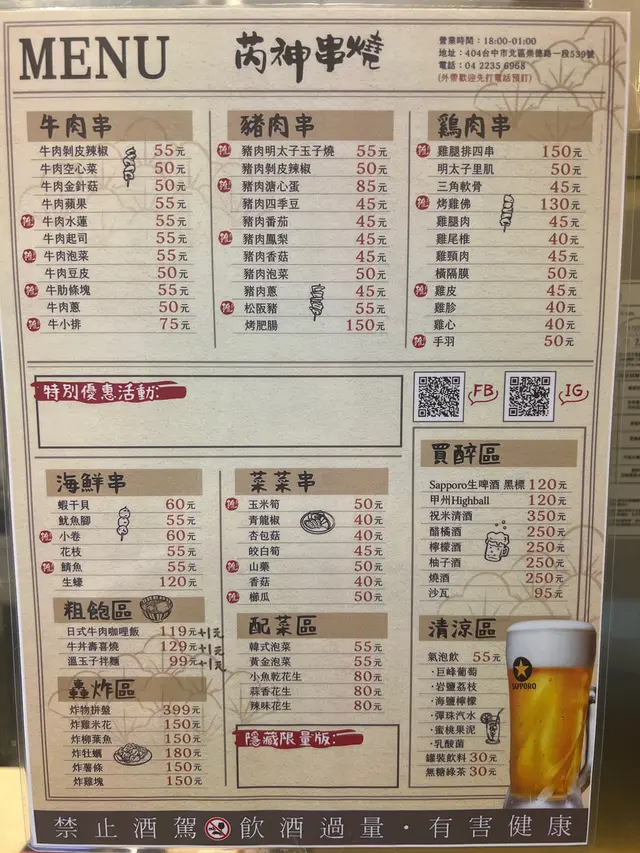 MENU
芮神串燒
營業時間：18:00-01:00
地址：404台中市北區崇德路一段539號
電話：04 2235 6968
(外帶歡迎先打電話預訂)
牛肉串
牛肉剝皮辣椒 55元
牛肉空心菜 50元
牛肉金針菇 50元
牛肉蘋果 55元
牛肉水蓮 55元
牛肉起司 55元
牛肉泡菜 55元
牛肉豆皮 50元
牛肋條塊 55元
牛肉蔥 50元
牛小排 75元
豬肉串
豬肉明太子玉子燒 55元
豬肉剝皮辣椒 50元
豬肉溏心蛋 85元
豬肉四季豆 45元
豬肉番茄 45元
豬肉鳳梨 45元
豬肉香菇 45元
豬肉泡菜 50元
豬肉蔥 45元
松阪豬 55元
烤肥腸 150元
鷄肉串
雞腿排四串 150元
明太子里肌 50元
三角軟骨 45元
烤雞佛 130元
雞腿肉 45元
雞尾椎 40元
雞頸肉 45元
橫隔膜 50元
雞皮 45元
雞胗 40元
雞心 40元
手羽 50元
特別優惠活動:
FB
IG
海鮮串
蝦干貝 60元
魷魚腳 55元
小卷 60元
花枝 55元
鯖魚 55元
生蠔 120元
粗飽區
日式牛肉咖哩飯 119元+1元
牛丼壽喜燒 129元+1元
溫玉子拌麵 99元+1元
轟炸區
炸物拼盤 399元
炸雞米花 150元
炸柳葉魚 150元
炸牡蠣 180元
炸薯條 150元
炸雞塊 150元
菜菜串
玉米筍 50元
青龍椒 40元
杏包菇 40元
皎白筍 45元
山藥 50元
香菇 40元
櫛瓜 50元
配菜區
韓式泡菜 55元
黃金泡菜 55元
小魚乾花生 80元
蒜香花生 80元
辣味花生 80元
隱藏限量版:
買醉區
Sapporo生啤酒 黑標 120元
甲州Highball 120元
祝米清酒 350元
醋橘酒 250元
檸檬酒 250元
柚子酒 250元
燒酒 250元
沙瓦 95元
清涼區
氣泡飲 55元
·巨峰葡萄
·岩鹽荔枝
·海鹽檸檬
·彈珠汽水
·蜜桃果泥
·乳酸菌
罐裝飲料 30元
無糖綠茶 30元
SAPPORO
禁止酒駕 飲酒過量·有害健康